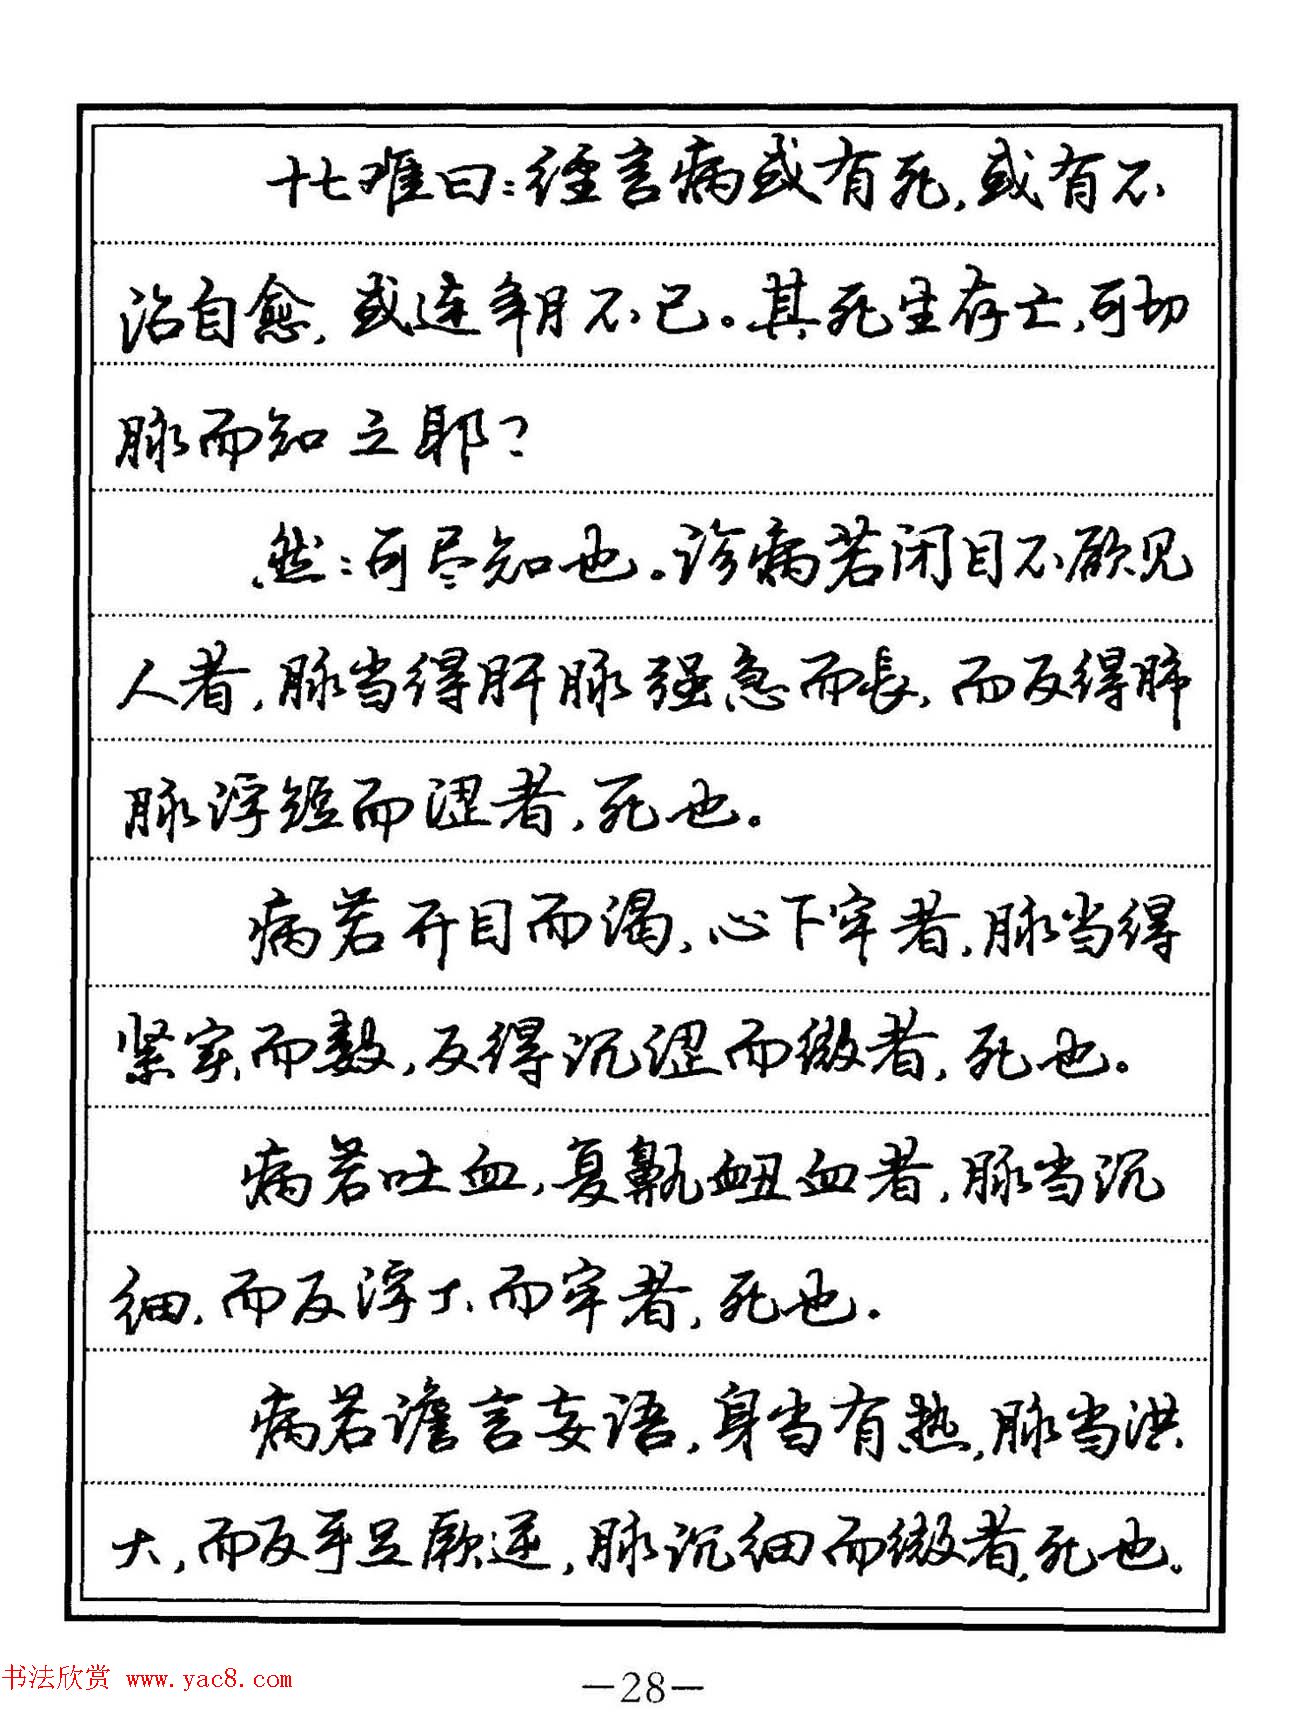 十七难曰：经言病或有死，或有不
治自愈，或连年月不已。其死生存亡，可切
脉而知之耶？
然：可尽知也。诊病若闭目不欲见
人者，脉当得肝脉强急而長，而反得肺
脉浮短而涩者，死也。
病若开目而渴，心下牢者，脉当得
紧实而数，反得沉涩而微者，死也。
病若吐血，复鼽衄血者，脉当沉
细，而反浮大而牢者，死也。
病若谵言妄语，身当有热，脉当洪
大，而反手足厥逆，脉沉细而微者，死也。
书法欣赏 www.yac8.com
—28—